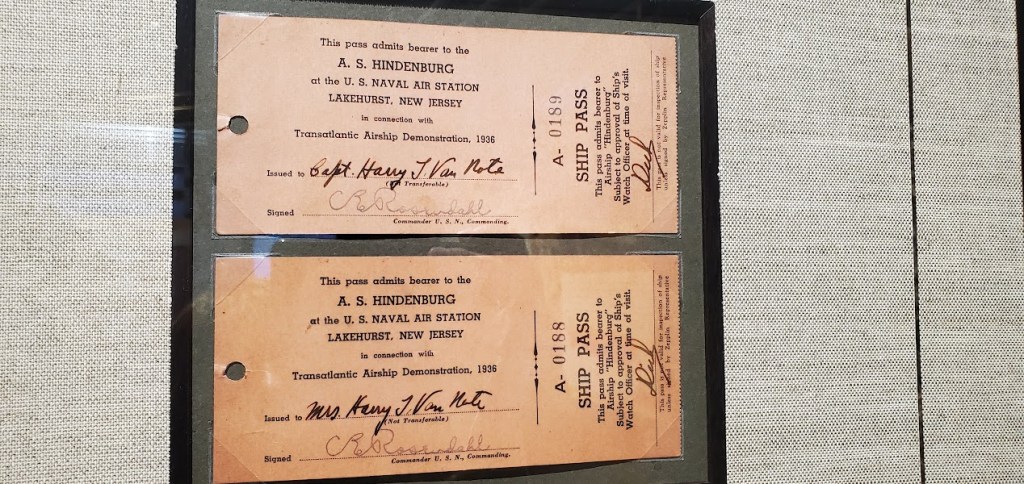 This pass admits bearer to the
A. S. HINDENBURG
at the U. S. NAVAL AIR STATION
LAKEHURST, NEW JERSEY
in connection with
Transatlantic Airship Demonstration, 1936
Issued to Capt. Harry J. Van Note
(Not Transferable)
Signed C E Rosendahl
Commander U. S. N., Commanding.
A- 0189
SHIP PASS
This pass admits bearer to
Airship "Hindenburg"
Subject to approval of Ship's
Watch Officer at time of visit.
This pass is not valid for inspection of ship
unless signed by Zepplin Representative
This pass admits bearer to the
A. S. HINDENBURG
at the U. S. NAVAL AIR STATION
LAKEHURST, NEW JERSEY
in connection with
Transatlantic Airship Demonstration, 1936
Issued to Mrs. Harry J. Van Note
(Not Transferable)
Signed C E Rosendahl
Commander U. S. N., Commanding.
A- 0188
SHIP PASS
This pass admits bearer to
Airship "Hindenburg"
Subject to approval of Ship's
Watch Officer at time of visit.
This pass is not valid for inspection of ship
unless signed by Zepplin Representative